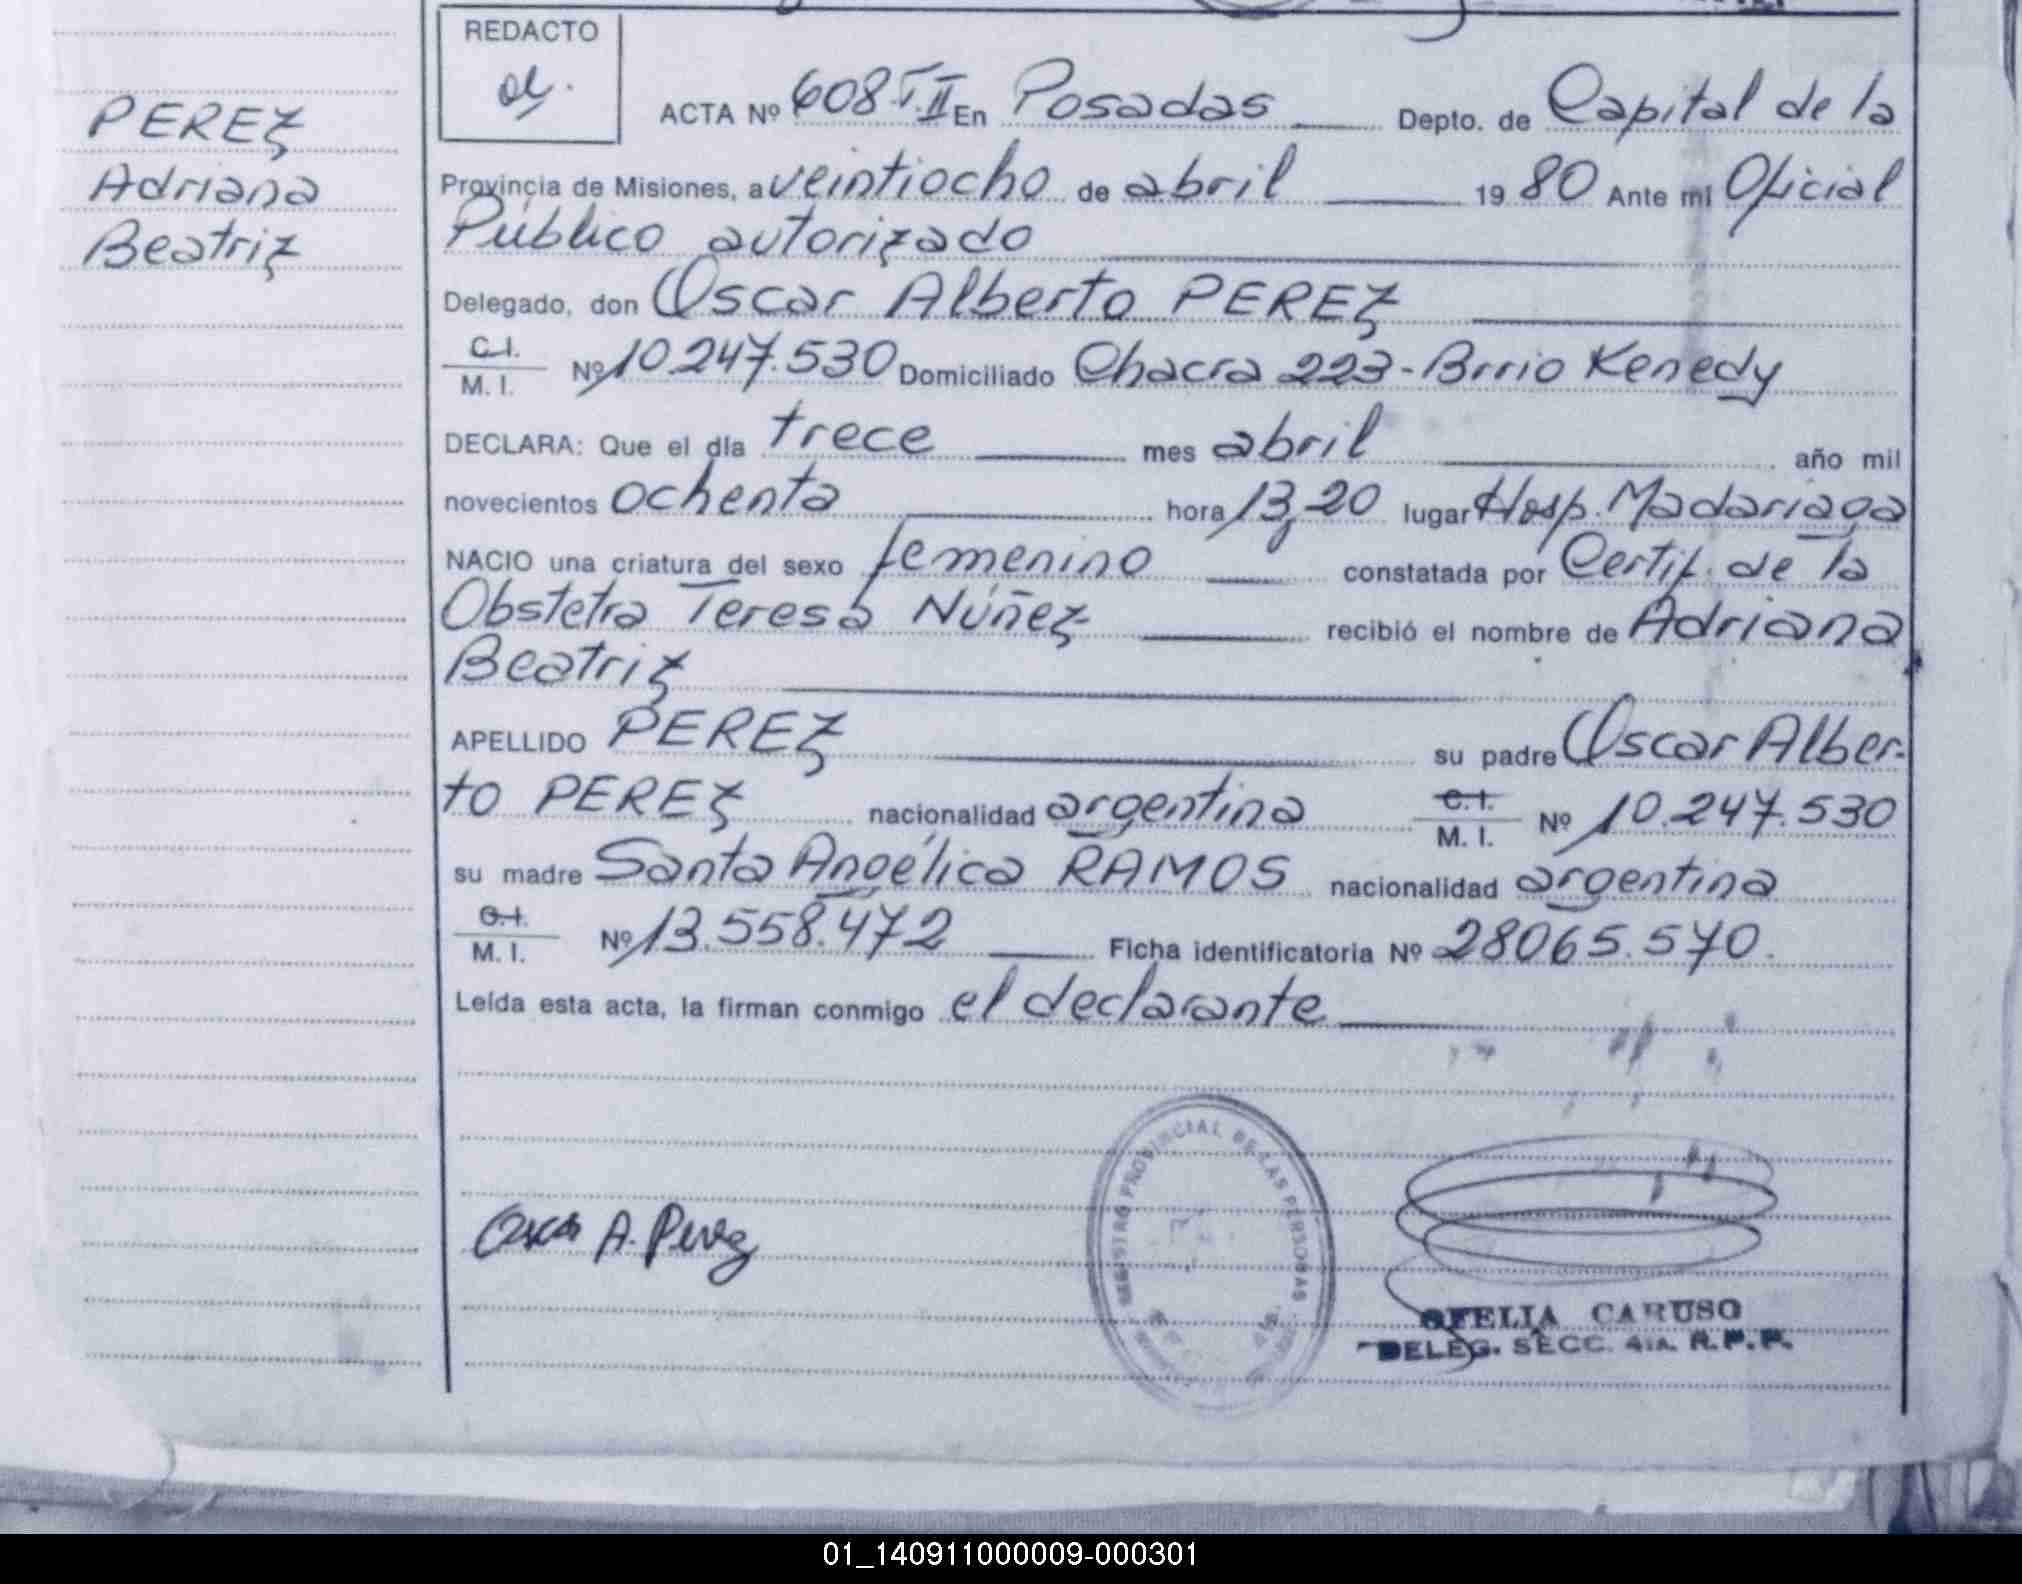 REDACTO
PEREZ
Adriana
Beatriz
ACTA Nº 608 T.II En Posadas Depto. de Capital de la
Provincia de Misiones, a veintiocho de abril 1980 Ante mi Oficial
Público autorizado
Delegado, don Oscar Alberto PEREZ
C.I.
M. I. Nº 10.247.530 Domiciliado Chacra 223 - Brrio Kenedy
DECLARA: Que el día trece mes abril año mil
novecientos ochenta hora 13,20 lugar Hosp. Madariaga
NACIO una criatura del sexo femenino constatada por Certif. de la
Obstetra Teresa Núñez recibió el nombre de Adriana
Beatriz
APELLIDO PEREZ su padre Oscar Alber-
to PEREZ nacionalidad argentina C.I.
M. I. Nº 10.247.530
su madre Santa Angélica RAMOS nacionalidad argentina
C.I.
M. I. Nº 13.558.472 Ficha identificatoria Nº 28065.570.
Leída esta acta, la firman conmigo el declarante
REGISTRO PROVINCIAL DE LAS PERSONAS
Oscar A. Perez
OFELIA CARUSO
DELEG. SECC. 4ta. R.P.P.
01_140911000009-000301